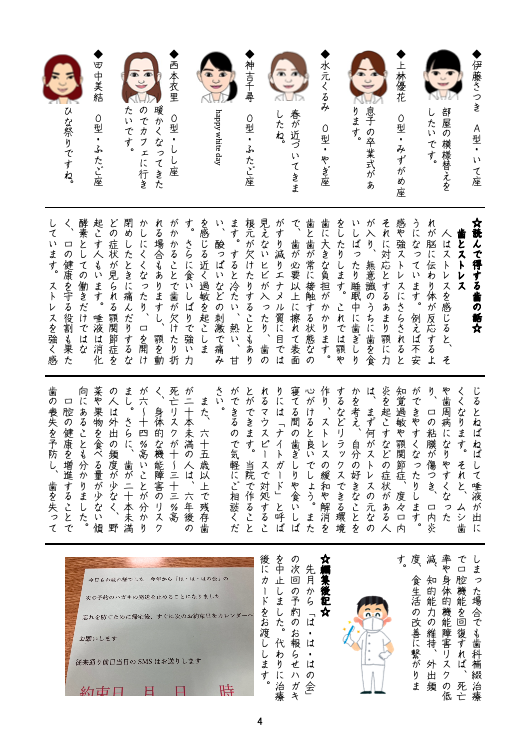 ◆伊藤さつき　A型・いて座
部屋の模様替えを
したいです。
◆上林優花　O型・みずがめ座
息子の卒業式があ
ります。
◆水元くるみ　O型・やぎ座
春が近づいてきま
したね。
◆神吉千尋　O型・ふたご座
happy white day
◆西本衣里　O型・しし座
暖かくなってきた
のでカフェに行き
たいです。
◆田中美結　O型・ふたご座
ひな祭りですね。
☆読んで得する歯の話☆
歯とストレス
人はストレスを感じると、そ
れが脳に伝わり体が反応するよ
うになっています。例えば不安
感や強ストレスにさらされると
それに対応とするあまり顎に力
が入り、無意識のうちに歯を食
いしばったり睡眠中に歯ぎしり
をしたりします。これでは顎や
歯に大きな負担がかかります。
歯と歯が常に接触する状態なの
で、歯が必要以上に擦れて表面
がすり減りエナメル質に目では
見えないヒビが入ったり、歯の
根元が欠けたりすることもあり
ます。すると冷たい、熱い、甘
い、酸っぱいなどの刺激で痛み
を感じる近く過敏を起こしま
す。さらに食いしばりで強い力
がかかることで歯が欠けたり折
れる場合もありますし、顎を動
かしにくくなったり、口を開け
閉めしたときに痛んだりするな
どの症状が見られる顎関節症を
起こす人もいます。唾液は消化
酵素としての働きだけではな
く、口の健康を守る役割も果た
しています。ストレスを強く感
じるとねばねばして唾液が出に
くくなります。それと、ムシ歯
や歯周病になりやすくなった
り、口の粘膜が傷つき、口内炎
ができやすくなったりします。
知覚過敏や顎関節症、度々口内
炎を起こすなどの症状がある人
は、まず何がストレスの元なの
かを考え、自分の好きなことを
するなどリラックスできる環境
作り、ストレスの緩和や解消を
心がけると良いでしょう。また
寝てる間の歯ぎしりや食いしば
りには「ナイトガード」と呼ば
れるマウスピースで対処するこ
とができます。当院で作ること
ができるので気軽にご相談くだ
さい。
また、六十五歳以上で残存歯
が二十本未満の人は、六年後の
死亡リスクが十～三十三％高
く、身体的な機能障害のリスク
が六～十四％高いことが分かり
まし。さらに、歯が二十本未満
の人は外出の頻度が少なく、野
菜や果物を食べる量が少ない傾
向にあることも分かりました。
口腔の健康を増進することで
歯の喪失を予防し、歯を失って
しまった場合でも歯科補綴治療
で口腔機能を回復すれば、死亡
率や身体的機能障害リスクの低
減、知的能力の維持、外出頻
度、食生活の改善に繋がりま
す。
☆編集後記☆
先月から「は・は・はの会」
の次回の予約のお報らせハガキ
を中止しました。代わりに治療
後にカードをお渡しします。
お願いします
従来通り前日当日のSMSはお送りします
約束日　月　日　時
4